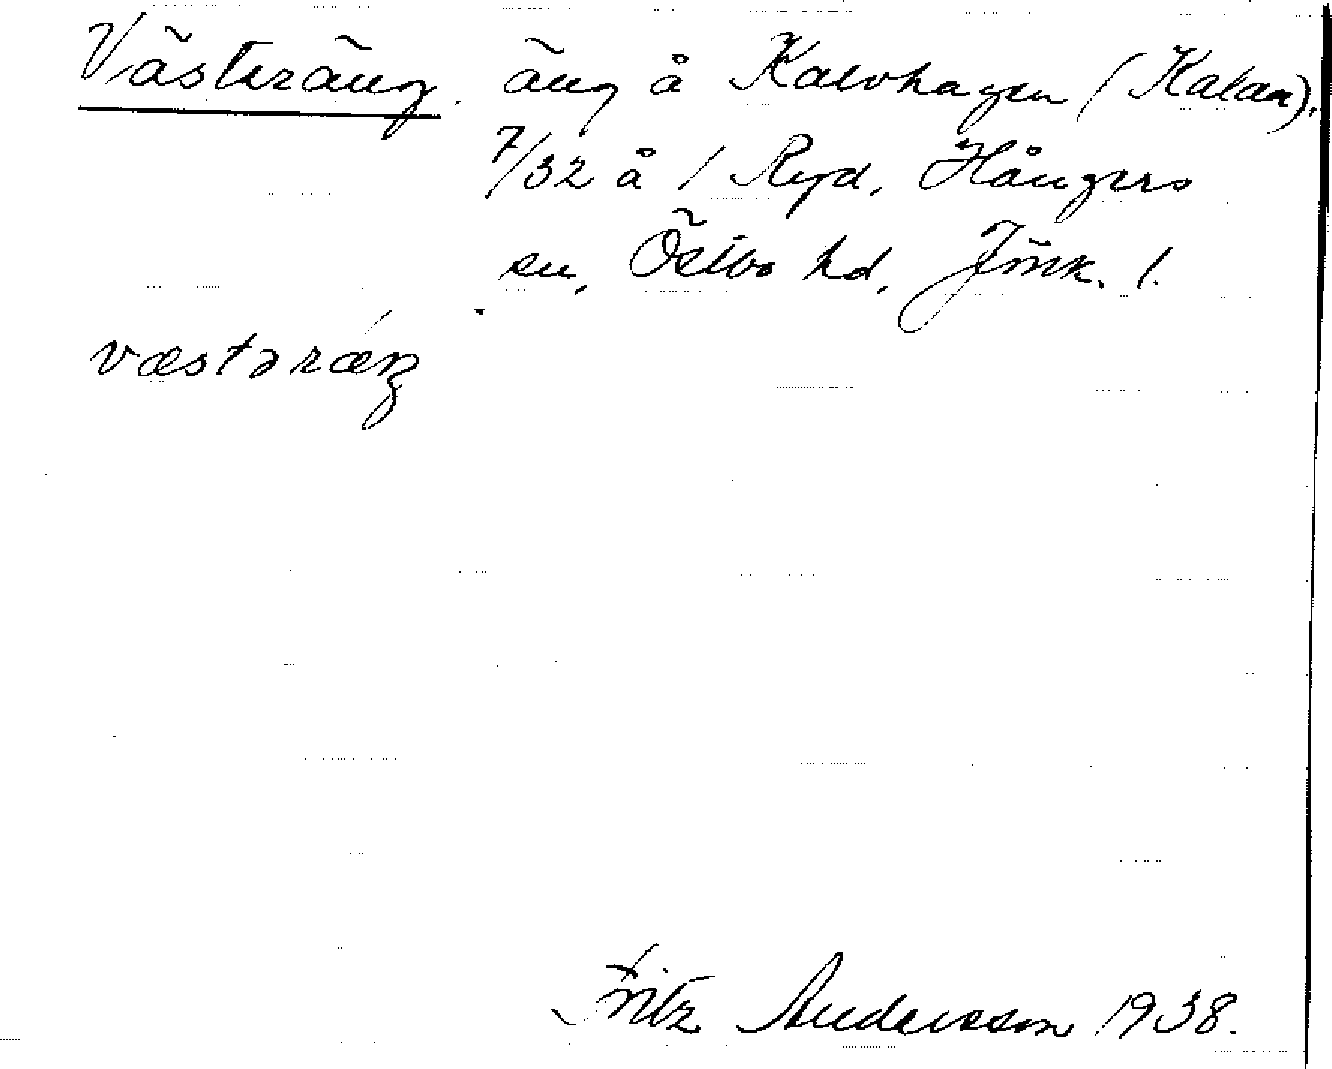 Västeräng. äng å Kalvhagen (Kalan).
7/32 å 1 Ryd, Hångers
sn, Östbo hd, Jönk. l.
væstəræŋ
Fritz Andersson 1938.